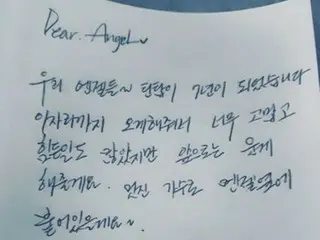 Dear. Angel
우리 엔젤들~ 탄탄이 7년이 되었습니다
이자리까지 오게해줘서 너무 고맙고
힘든일도 많았지만 앞으로는 웃게
해줄게요. 멋진 가수로 엔젤옆에
붙어있을게요~